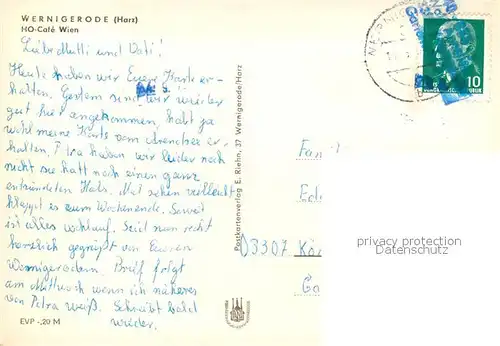 WERNIGERODE (Harz)
HO-Café Wien
Liebe Mutti und Vati!
Heute haben wir Eure Karte er-
halten. Gestern sind wir wieder
gut hier angekommen, habt ja
wohl meine Karte vom
halten. Petra haben wir leider noch
nicht sie hat noch einen ganz
entzündeten Hals. Mal sehen vielleicht
klappt es zum Wochenende. Soweit
ist alles wohlauf. Seid nun recht
herzlich gegrüßt von Euren
Wernigerödern. Brief folgt
am Mittwoch wenn ich näheres
von Petra weiß. Schreibt bald
wieder.
EVP -,20 M
Postkartenverlag E. Riehn, 37 Wernigerode/Harz
10
Fam
03307 Kö
Ga
privacy protection
Datenschutz